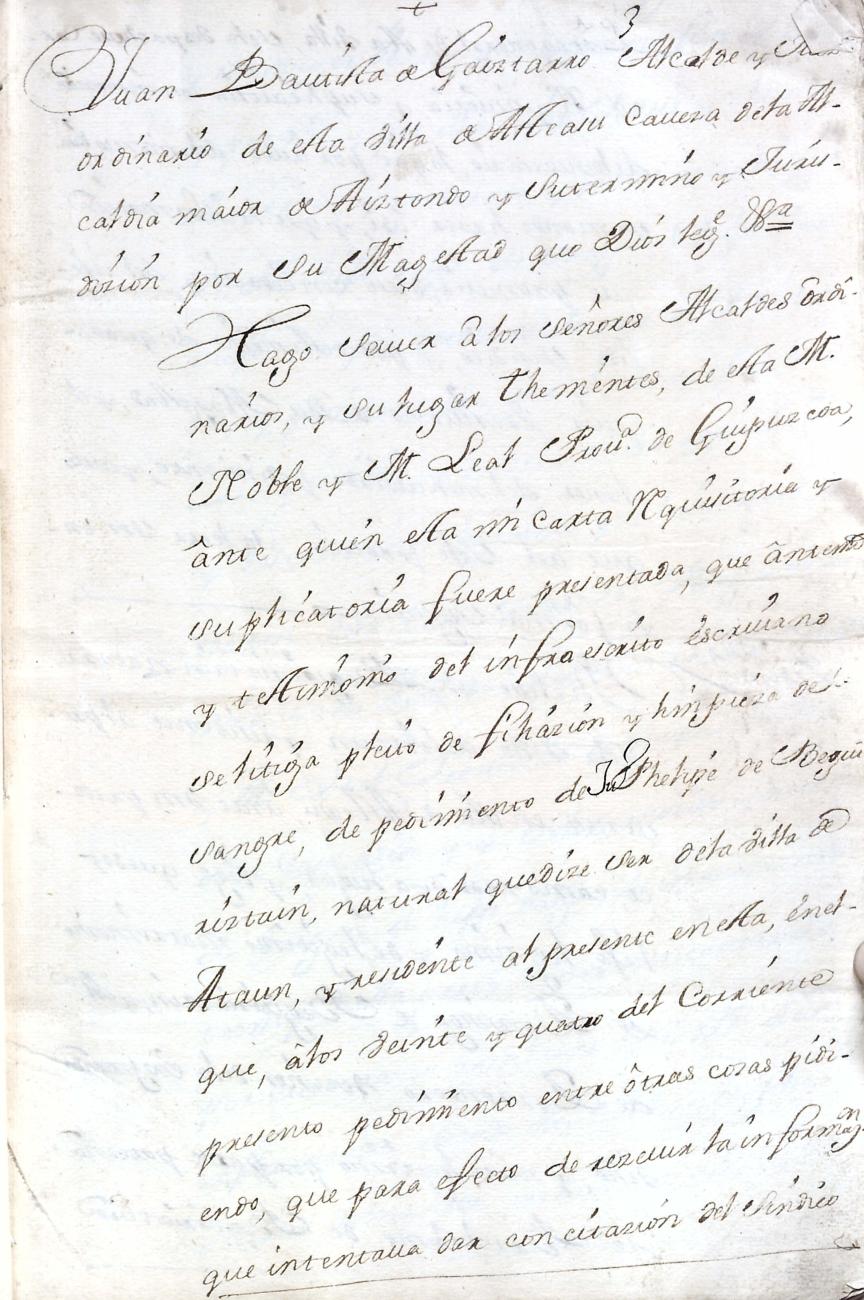 3
Juan Bautista de Gaiztarro Alcalde y Juez
ordinario de esta Villa de Alcasu Caueza de la Al-
caldia maior de Aiztondo y su termino y Juris-
dizion por su Magestad que Dios
Hago sauer â los señores Alcaldes ordi-
narios, y su lugar thenientes, de esta M.
Noble y M. Leal Prou.ª de Guipuzcoa,
ânte quien esta mi carta Requisitoria y
suplicatoria fuere presentada, que ânte mi
y testimonio del infraescrito escriuano
se litiga pleito de filiazion y limpieza de
sangre, de pedimiento de Ju Phelipe de Begui
riztain, natural que dize ser de la Villa de
Ataun, y residente al presente en esta, en el-
que, â los veinte y quatro del Corriente
presento pedimiento entre ôtras cosas pidi-
endo, que para efecto de rezeuir la informaon
que intentaua dar con citazion del sindico